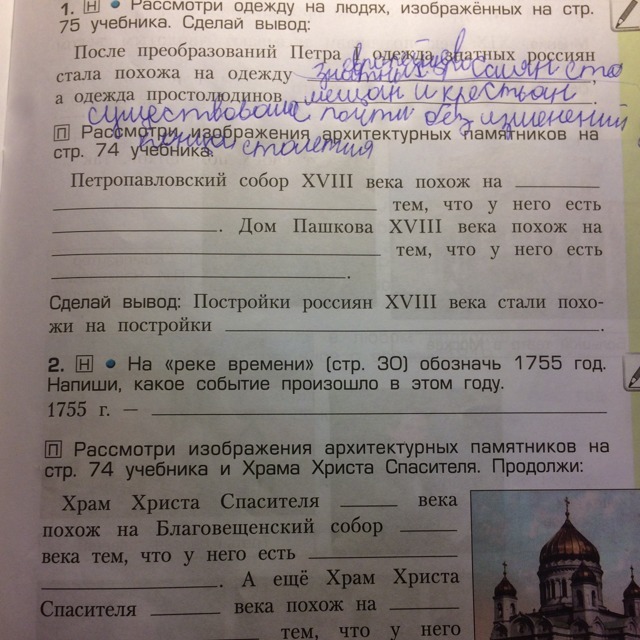 1. Н • Рассмотри одежду на людях, изображённых на стр.
75 учебника. Сделай вывод:
После преобразований Петра I одежда знатных россиян
стала похожа на одежду знатных россиян ста
а одежда простолюдинов мещан и крестьян
существовала почти без изменений
столетия
П Рассмотри изображения архитектурных памятников на
стр. 74 учебника.
Петропавловский собор XVIII века похож на ________
________ тем, что у него есть
________. Дом Пашкова XVIII века похож на
________ тем, что у него есть
________.
Сделай вывод: Постройки россиян XVIII века стали похо-
жи на постройки ________.
2. Н • На «реке времени» (стр. 30) обозначь 1755 год.
Напиши, какое событие произошло в этом году.
1755 г. — ________
П Рассмотри изображения архитектурных памятников на
стр. 74 учебника и Храма Христа Спасителя. Продолжи:
Храм Христа Спасителя ________ века
похож на Благовещенский собор ________
века тем, что у него есть ________
________. А ещё Храм Христа
Спасителя ________ века похож на ________
________ тем, что у него